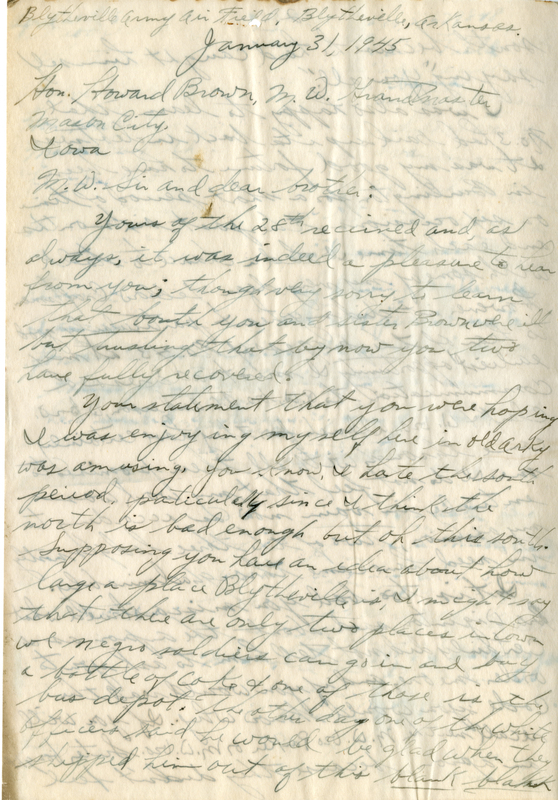 Blytheville Army Air Field, Blytheville, Arkansas.
January 31, 1945
Hon. Howard Brown, M. W. Grand Master
Mason City,
Iowa
M. W. Sir and dear brother:
Yours of the 28th received and, as
always, it was indeed a pleasure to hear
from you; though very sorry to learn
that both you and Sister Brown were ill
but trusting that by now you two
have fully recovered.
Your statement that you were hoping
I was enjoying myself here in old arky
was amusing. You know, I hate the south
period, paticulely since I think the
north is bad enough but oh this south.
Supposing you have an idea about how
large a place Blytheville is, I might say
that there are only two places in town
we negro soldiers can go in and buy
a bottle of coke & one of those is the
bus depot. The other day one of the white
officers said he would be glad when they
shipped him out of this blank blank